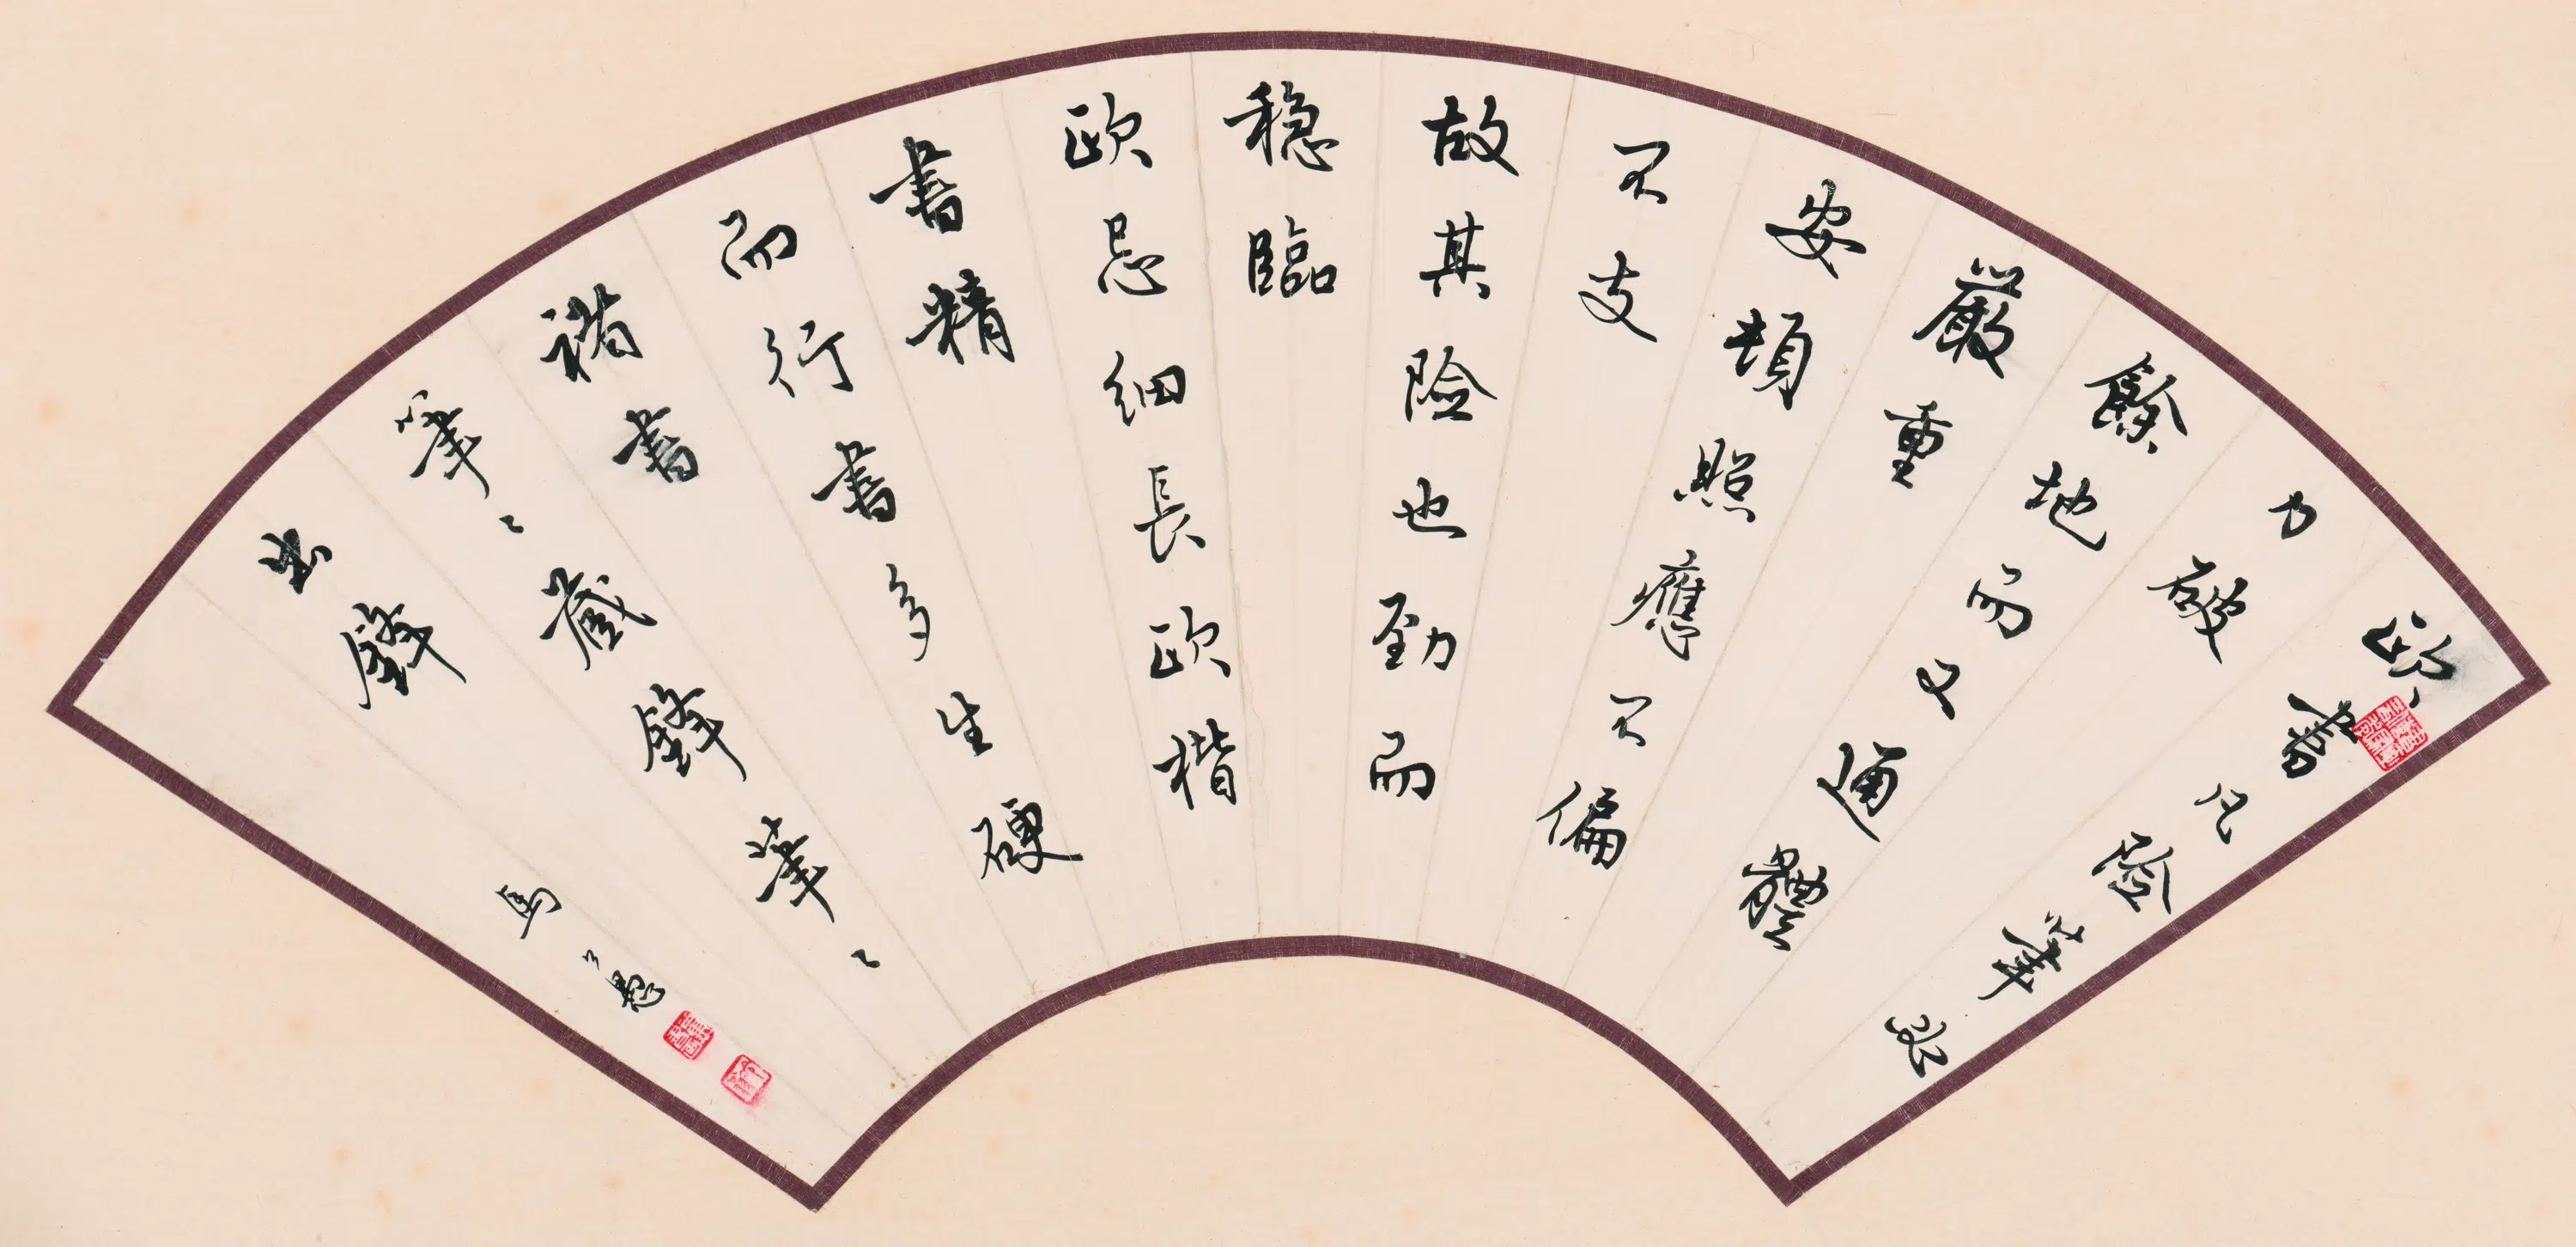 歐書凡險筆必
力破
餘地而又通體
嚴重
安頓照應不偏
不支
故其險也勁而
穩臨
歐忌細長歐楷
書精
而行書多生硬
褚書
筆〻藏鋒筆〻
出鋒
馬公愚